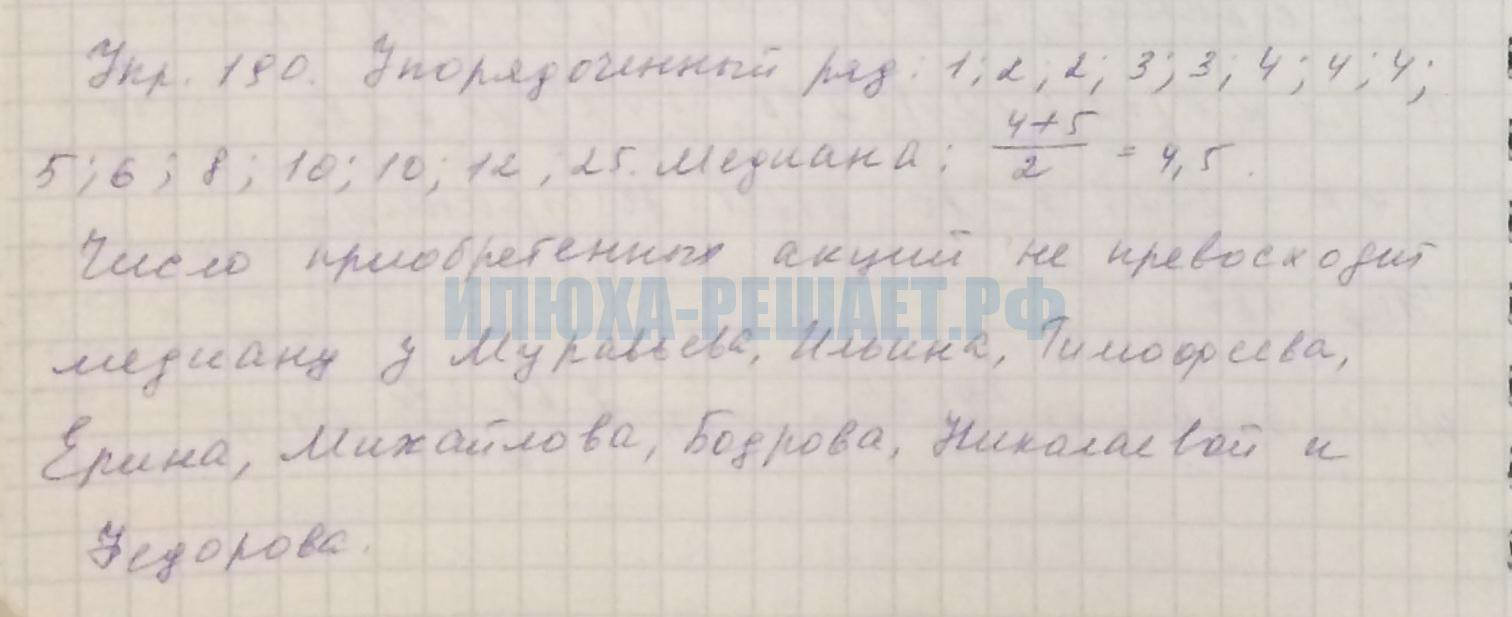 Упр. 190. Упорядоченный ряд: 1; 2; 2; 3; 3; 4; 4; 4;
5; 6; 8; 10; 10; 12; 25. Медиана: (4+5)/2 = 4,5.
Число приобретенных акций не превосходит
ИЛЮХА-РЕШАЕТ.РФ
медиану у Муравьева, Ильина, Тимофеева,
Ерина, Михайлова, Бодрова, Николаевой и
Федорова.